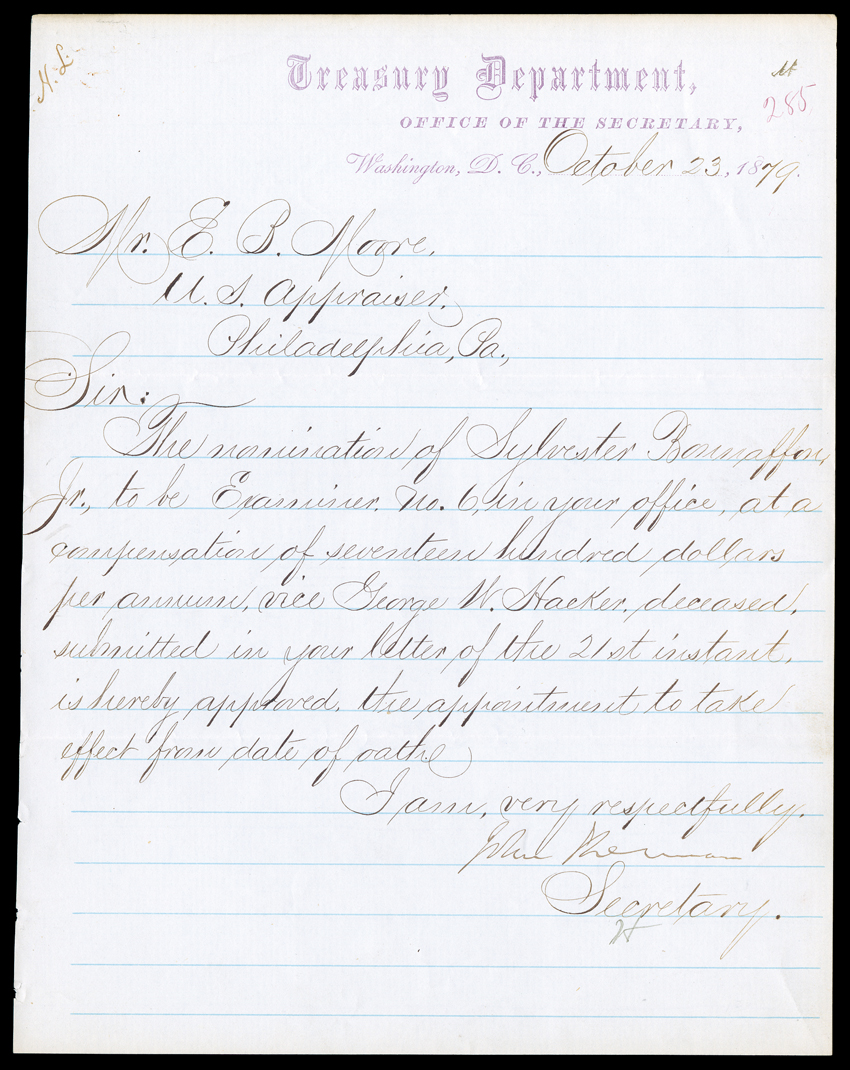 H. L.
Treasury Department,
285
OFFICE OF THE SECRETARY,
Washington, D. C., October 23, 1879.
Mr. E. B. Moore,
U. S. Appraiser,
Philadelphia, Pa.,
Sir:
The nomination of Sylvester Bonnaffon,
Jr., to be Examiner, No. 6, in your office, at a
compensation of seventeen hundred dollars
per annum, vice George W. Hacker, deceased,
submitted in your letter of the 21st instant,
is hereby approved, the appointment to take
effect from date of oath.
I am, very respectfully,
John Sherman
Secretary.